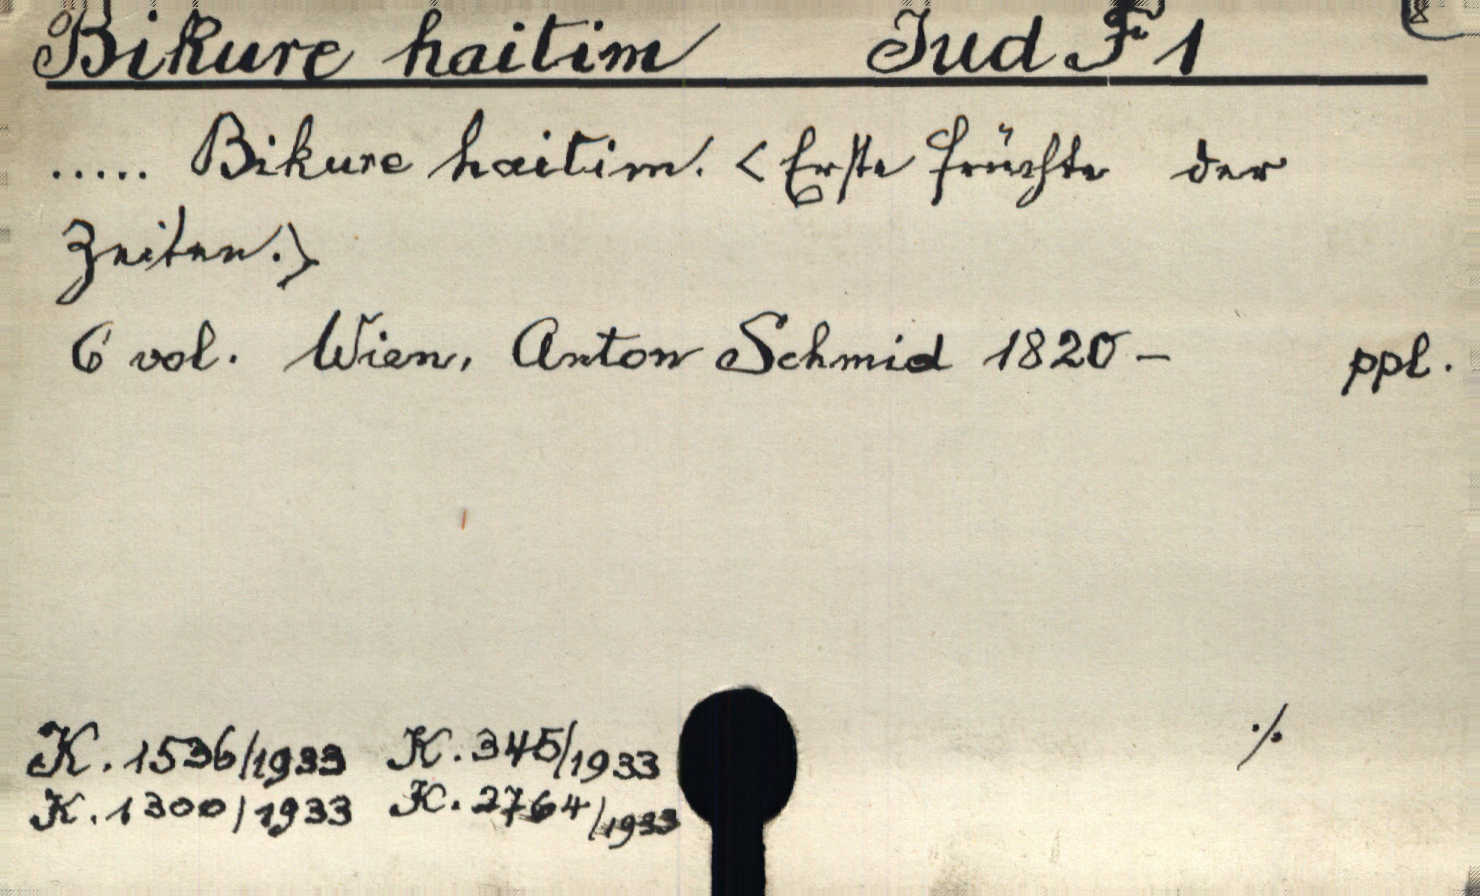 Bikure haitim Jud F 1
..... Bikure haitim. < Erste Früchte der
Zeiten.>
6 vol. Wien, Anton Schmid 1820- ppl.
K. 1536/1933 K. 345/1933 ./.
K. 1300/1933 K. 2764/1933